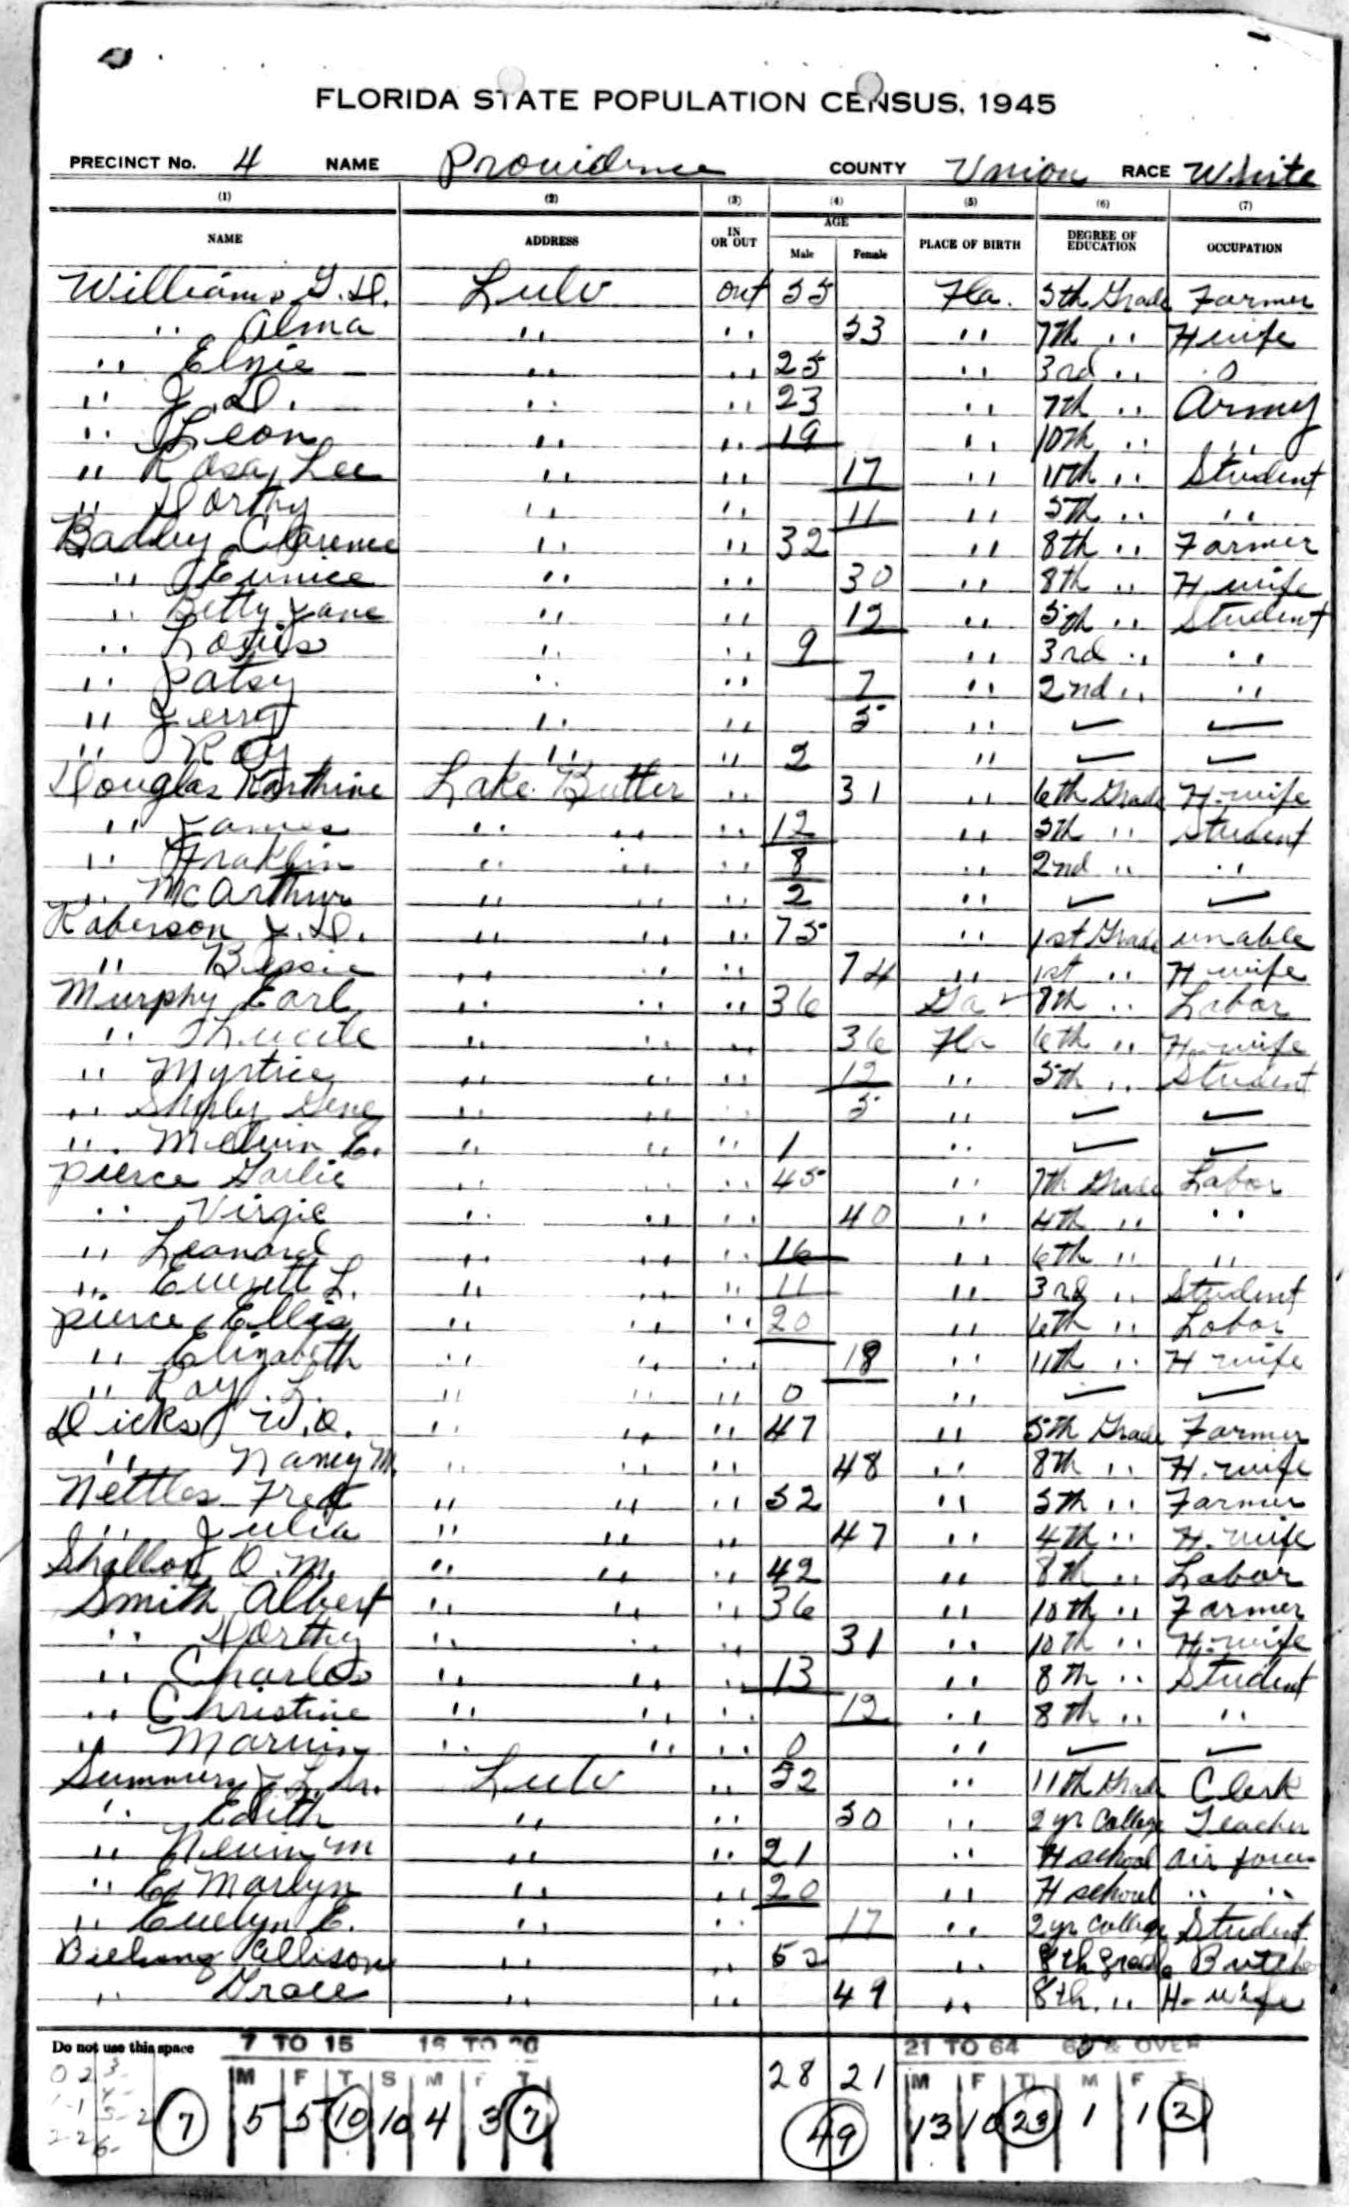 FLORIDA STATE POPULATION CENSUS, 1945
PRECINCT No. 4 NAME Providence COUNTY Union RACE White
(1) (2) (3) (4) (5) (6) (7)
NAME ADDRESS IN OR OUT AGE Male Female PLACE OF BIRTH DEGREE OF EDUCATION OCCUPATION
Williams G. D. Lulu out 55 Fla. 5th Grade Farmer
" Alma " " " 53 " 7th " H wife
" Elzie " " " 25 " 3rd " 0
" J. D. " " " 23 " 7th " Army
" Leon " " " 19 " 10th " "
" Rosa Lee " " " 17 " 11th " Student
" Dorthy " " " 11 " 5th " "
Clarence " " " 32 " 8th " Farmer
" Eunice " " " 30 " 8th " H wife
" Betty Jane " " " 12 " 5th " Student
" Louis " " " 9 " 3rd " "
" Patsy " " " 7 " 2nd " "
" Jerry " " " 5 " ✓ ✓
" Roy " " " 2 " ✓ ✓
Douglas Kathrine Lake Butler " 31 " 6th Grade H. wife
" James " " " 12 " 5th " Student
" Fraklin " " " 8 " 2nd " "
" McArthur " " " 2 " ✓ ✓
Roberson J. D. " " " 75 " 1st Grade unable
" Bessie " " " 74 " 1st " H wife
Murphy Earl " " " 36 Ga ✓ 8th " Labor
" Lucile " " " 36 Fla 6th " H. wife
" Myrtice " " " 12 " 5th " Student
" Gene " " " 5 " ✓ ✓
" Melvin E. " " " 1 " ✓ ✓
Pierce " " " 45 " 7th Grade Labor
" Virgie " " " 40 " 4th " "
" Leonard " " " 16 " 6th " "
" Everett L. " " " 11 " 3rd " Student
Pierce Ellis " " " 20 " 6th " Labor
" Elizabeth " " " 18 " 11th " H wife
" Ray L. " " " 0 " ✓ ✓
Dicks W. O. " " " 47 " 5th Grade Farmer
" Nancy M. " " " 48 " 8th " H. wife
Nettles Fred " " " 52 " 5th " Farmer
" Julia " " " 47 " 4th " H. wife
O. M. " " " 42 " 8th " Labor
Smith Albert " " " 36 " 10th " Farmer
" Dorthy " " " 31 " 10th " H. wife
" Charles " " " 13 " 8th " Student
" Christine " " " 12 " 8th " "
" Marvin " " " 0 " ✓ ✓
Summers J. L. Sr. Lulu " 52 " 11th Grade Clerk
" Edith " " 50 " 2 yr College Teacher
" M " " 21 " H school air force
" E. Marlyn " " 20 " H school " "
" Evelyn E. " " 17 " 2 yr College Student
Allison " " 52 " 8th grade
" Grace " " 49 " 8th " H. wife
Do not use this space 7 TO 15 16 TO 20 28 21 21 TO 64 65 & OVER
M F T S M F T M F T M F T
7 5 5 10 10 4 3 7 49 13 10 23 1 1 2